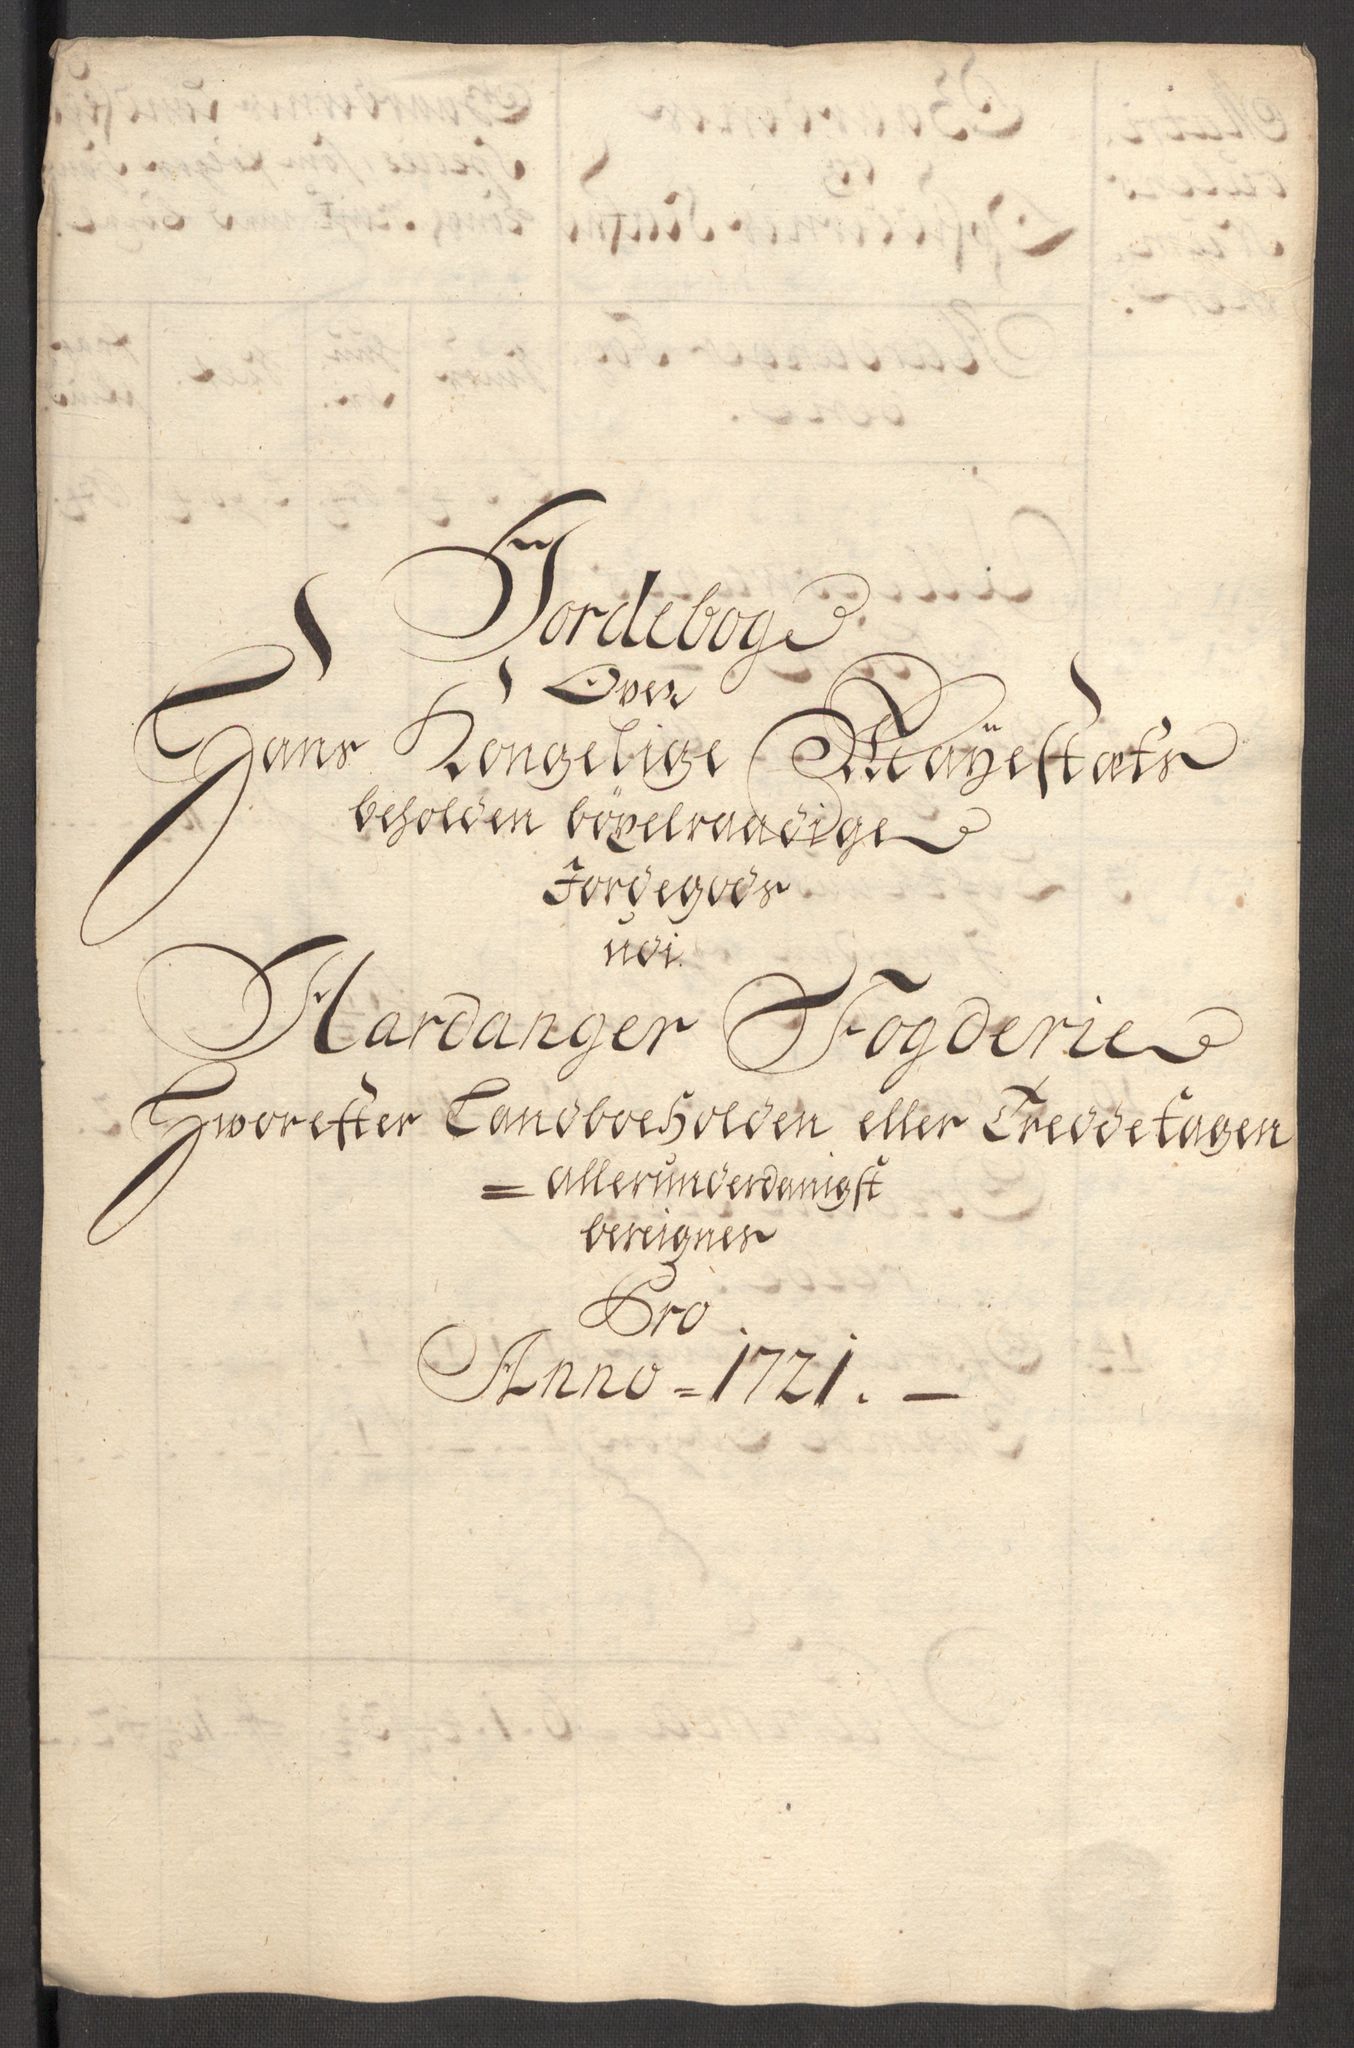 Jordebog
Over
Hans Kongelige Mayestæts
beholden böxelraadige
Jordegods
udi
Hardanger Fogderie
Hworefter Landboeholden eller Treddetagen
= allerunderdanigst
bereignes
Pro
Anno = 1721. —